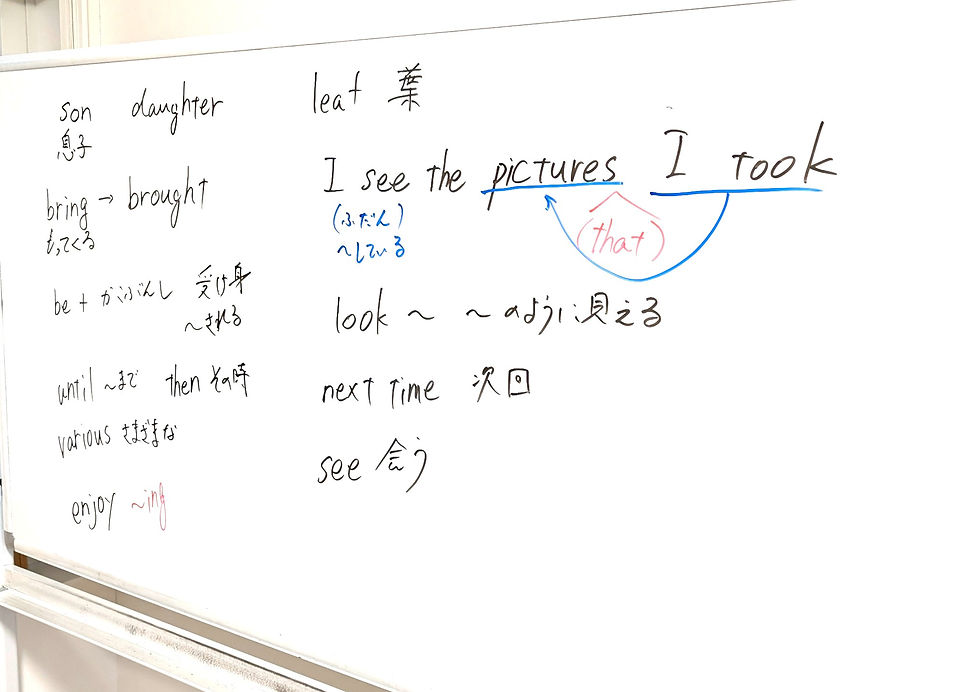 son daughter
息子
bring → brought
もってくる
be + かこぶんし 受け身
~される
until ~まで then その時
various さまざまな
enjoy ~ing
leaf 葉
I see the pictures I took
(ふだん)
~している
(that)
look ~ ~のように見える
next time 次回
see 会う